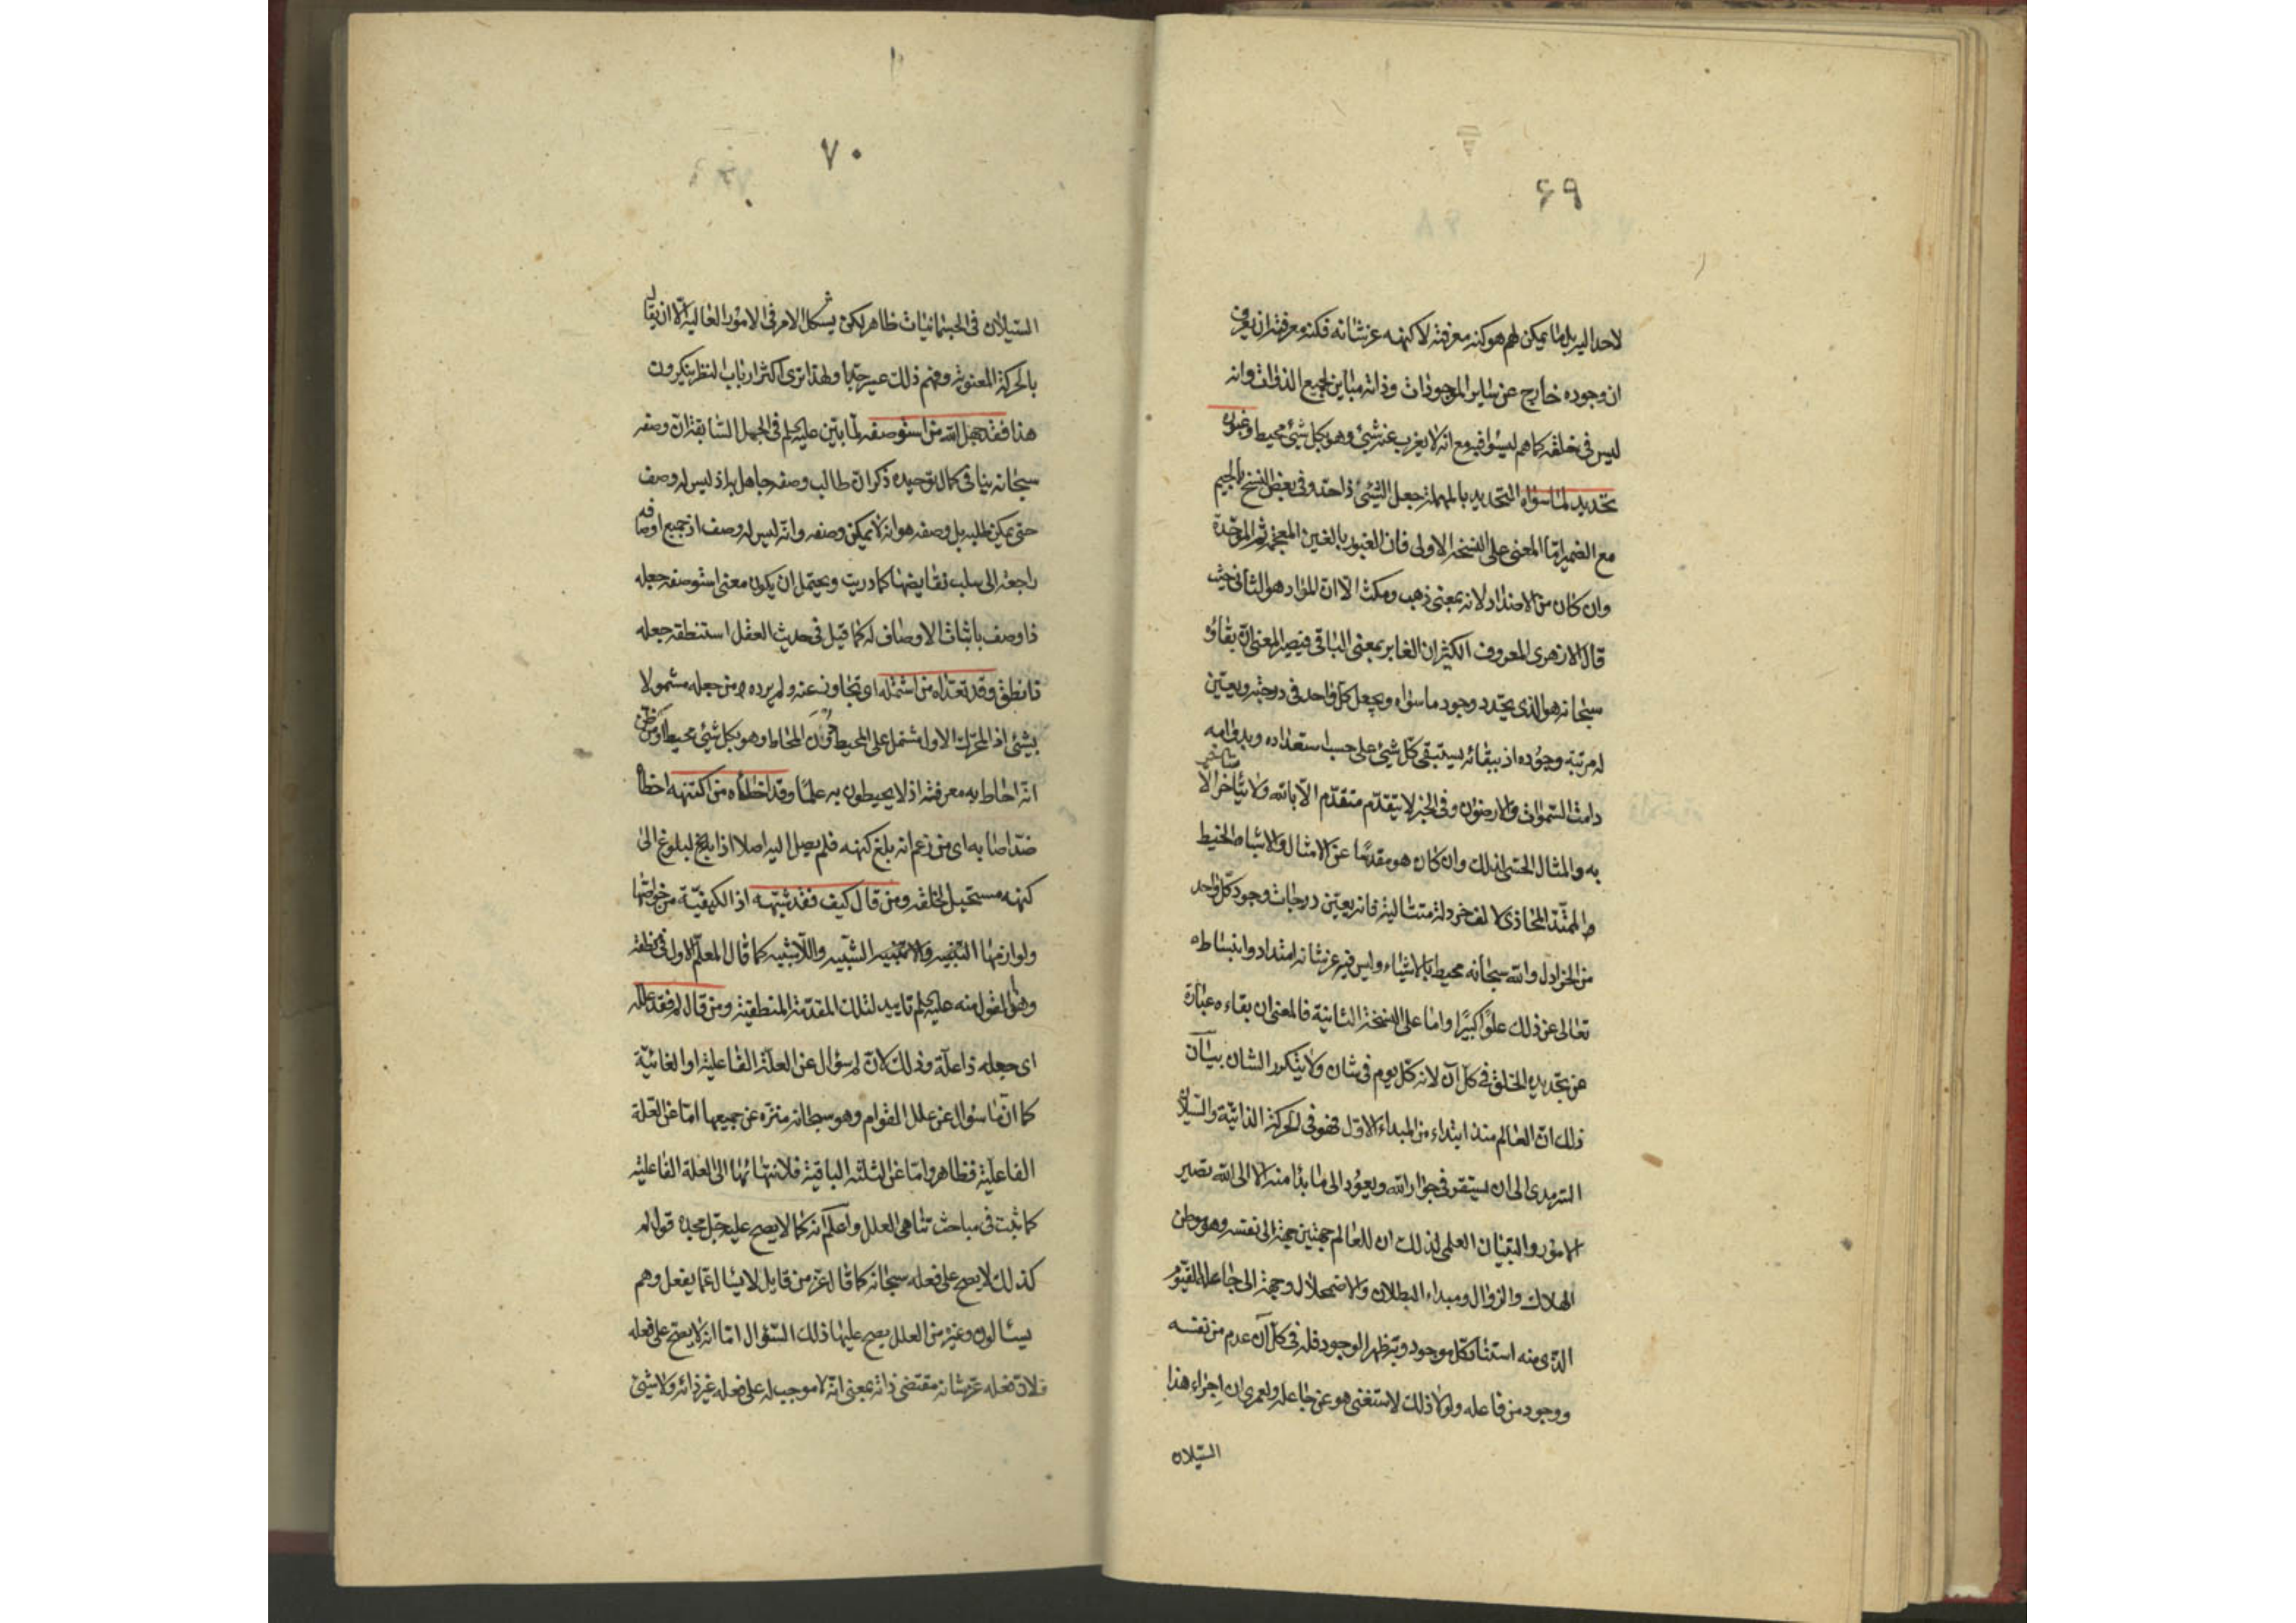 ٦٩
لاحد اليه بل ما يمكن لهم هو كنه معرفته لا كنهه عز شانه فكنه معرفته ان يعرف
ان وجوده خارج عن ساير الموجودات وذاته مباين لجميع الذوات وانه
ليس فى خلقه كما هم ليسوا فيه مع انه لا يعزب عنه شئ وهو بكل شئ محيط وغبوره
تحديد لما سواه التحديد بالمهملة جعل الشئ ذا حد وفى بعض النسخ بالجيم
مع الضمير اما المعنى على النسخة الاولى فان الغبور بالغين المعجمة ثم الموحدة
وان كان من الاضداد لانه بمعنى ذهب ومكث الا ان المراد هو الثانى حيث
قال الازهرى المعروف الكثير ان الغابر بمعنى الباقى فيصير المعنى ان بقاؤه
سبحانه هو الذى يحدد وجود ما سواه ويجعل كل واحد فى درجته ويعين
له مرتبة وجوده اذ ببقائه يستبقى كل شئ على حسب استعداده وبدوامه
دامت السموات والارضون وفى الخبر لا يتقدم متقدم الا بالله ولا يتأخر متأخر الا
به والمثال الحسى لذلك وان كان هو مقدسا عن الامثال والاشباه الخيط
الممتد المحاذى لالف خردلة متتالية فانه يعين درجات وجود كل واحد
من الخرادل والله سبحانه محيط بالاشياء وليس فيه عز شانه امتداد وانبساط
تعالى عن ذلك علوا كبيرا واما على النسخة الثانية فالمعنى ان بقاءه عبارة
عن تجديده الخلق فى كل آن لانه كل يوم فى شان ولا يتكرر الشان بيان
ذلك ان العالم منذ ابتداء من المبداء الاول فهو فى الحركة الذاتية والسيلان
السرمدى الى ان يستقر فى جوار الله ويعود الى ما بدا منه الا الى الله تصير
الامور والتبيان العلمى لذلك ان للعالم جهتين جهة الى نفسه وهو موطن
الهلاك والزوال ومبداء البطلان والاضمحلال وجهة الى جاعله القيوم
الذى منه استناد كل موجود وبه ظهر الوجود فله فى كل آن عدم من نفسه
ووجود من فاعله ولولا ذلك لاستغنى هو عن جاعله ولعمرى ان اجراء هذا
السيلان
٧٠
السيلان فى الجسمانيات ظاهر لكن يشكل الامر فى الامور العالية الا ان يقال
بالحركة المعنوية وفهم ذلك عسير جدا ولهذا ترى اكثر ارباب النظر ينكرون
هذا فقد جهل الله من استوصفه لما بين عليه السلم فى الجمل السابقة ان وصفه
سبحانه ينافى كمال توحيده ذكر ان طالب وصفه جاهل به اذ ليس له وصف
حتى يمكن طلبه بل وصفه هو انه لا يمكن وصفه وانه ليس له وصف اذ جميع اوصافه
راجعة الى سلب نقايضها كما دريت ويحتمل ان يكون معنى استوصفه جعله
ذا وصف باثبات الاوصاف له كما قيل فى حديث العقل استنطقه جعله
ناطقا وقد تعداه من اشتمله اى تجاوز عنه ولم يرده من جعله مشمولا
بشئ اذ المحرك الاول مشتمل على المحيط دون المحاط وهو بكل شئ محيط او من ظن
انه احاط به معرفة اذ لا يحيطون به علما وقد اخطاه من اكتنهه اخطأ
ضد اصابه اى من زعم انه بلغ كنهه فلم يصل اليه اصلا اذ البلوغ الى
كنهه مستحيل لخلقه ومن قال كيف فقد شبهه اذ الكيفية من خواصها
ولوازمها التشبيه واللاتشبيه كما قال المعلم الاول فى منطقه
وهذا القول منه عليه السلم تاييد لتلك المقدمة المنطقية ومن قال لم فقد علله
اى جعله ذا علة وذلك لان لم سؤال عن العلة الفاعلية او الغائية
كما ان ما سؤال عن علل القوام وهو سبحانه منزه عن جميعها اما عن العلة
الفاعلية فظاهر واما عن الثلثة الباقية فلانتهائها الى العلة الفاعلية
كما ثبت فى مباحث تناهى العلل واعلم انه كما لا يصح عليه جل مجده قول لم
كذلك لا يصح على فعله سبحانه كما قال عز من قايل لا يسأل عما يفعل وهم
يسألون وغيره من العلل يصح عليها ذلك السؤال اما انه لا يصح على فعله
فلان فعله عز شانه مقتضى ذاته بمعنى انه لا موجب له على فعله غير ذاته ولا شئ